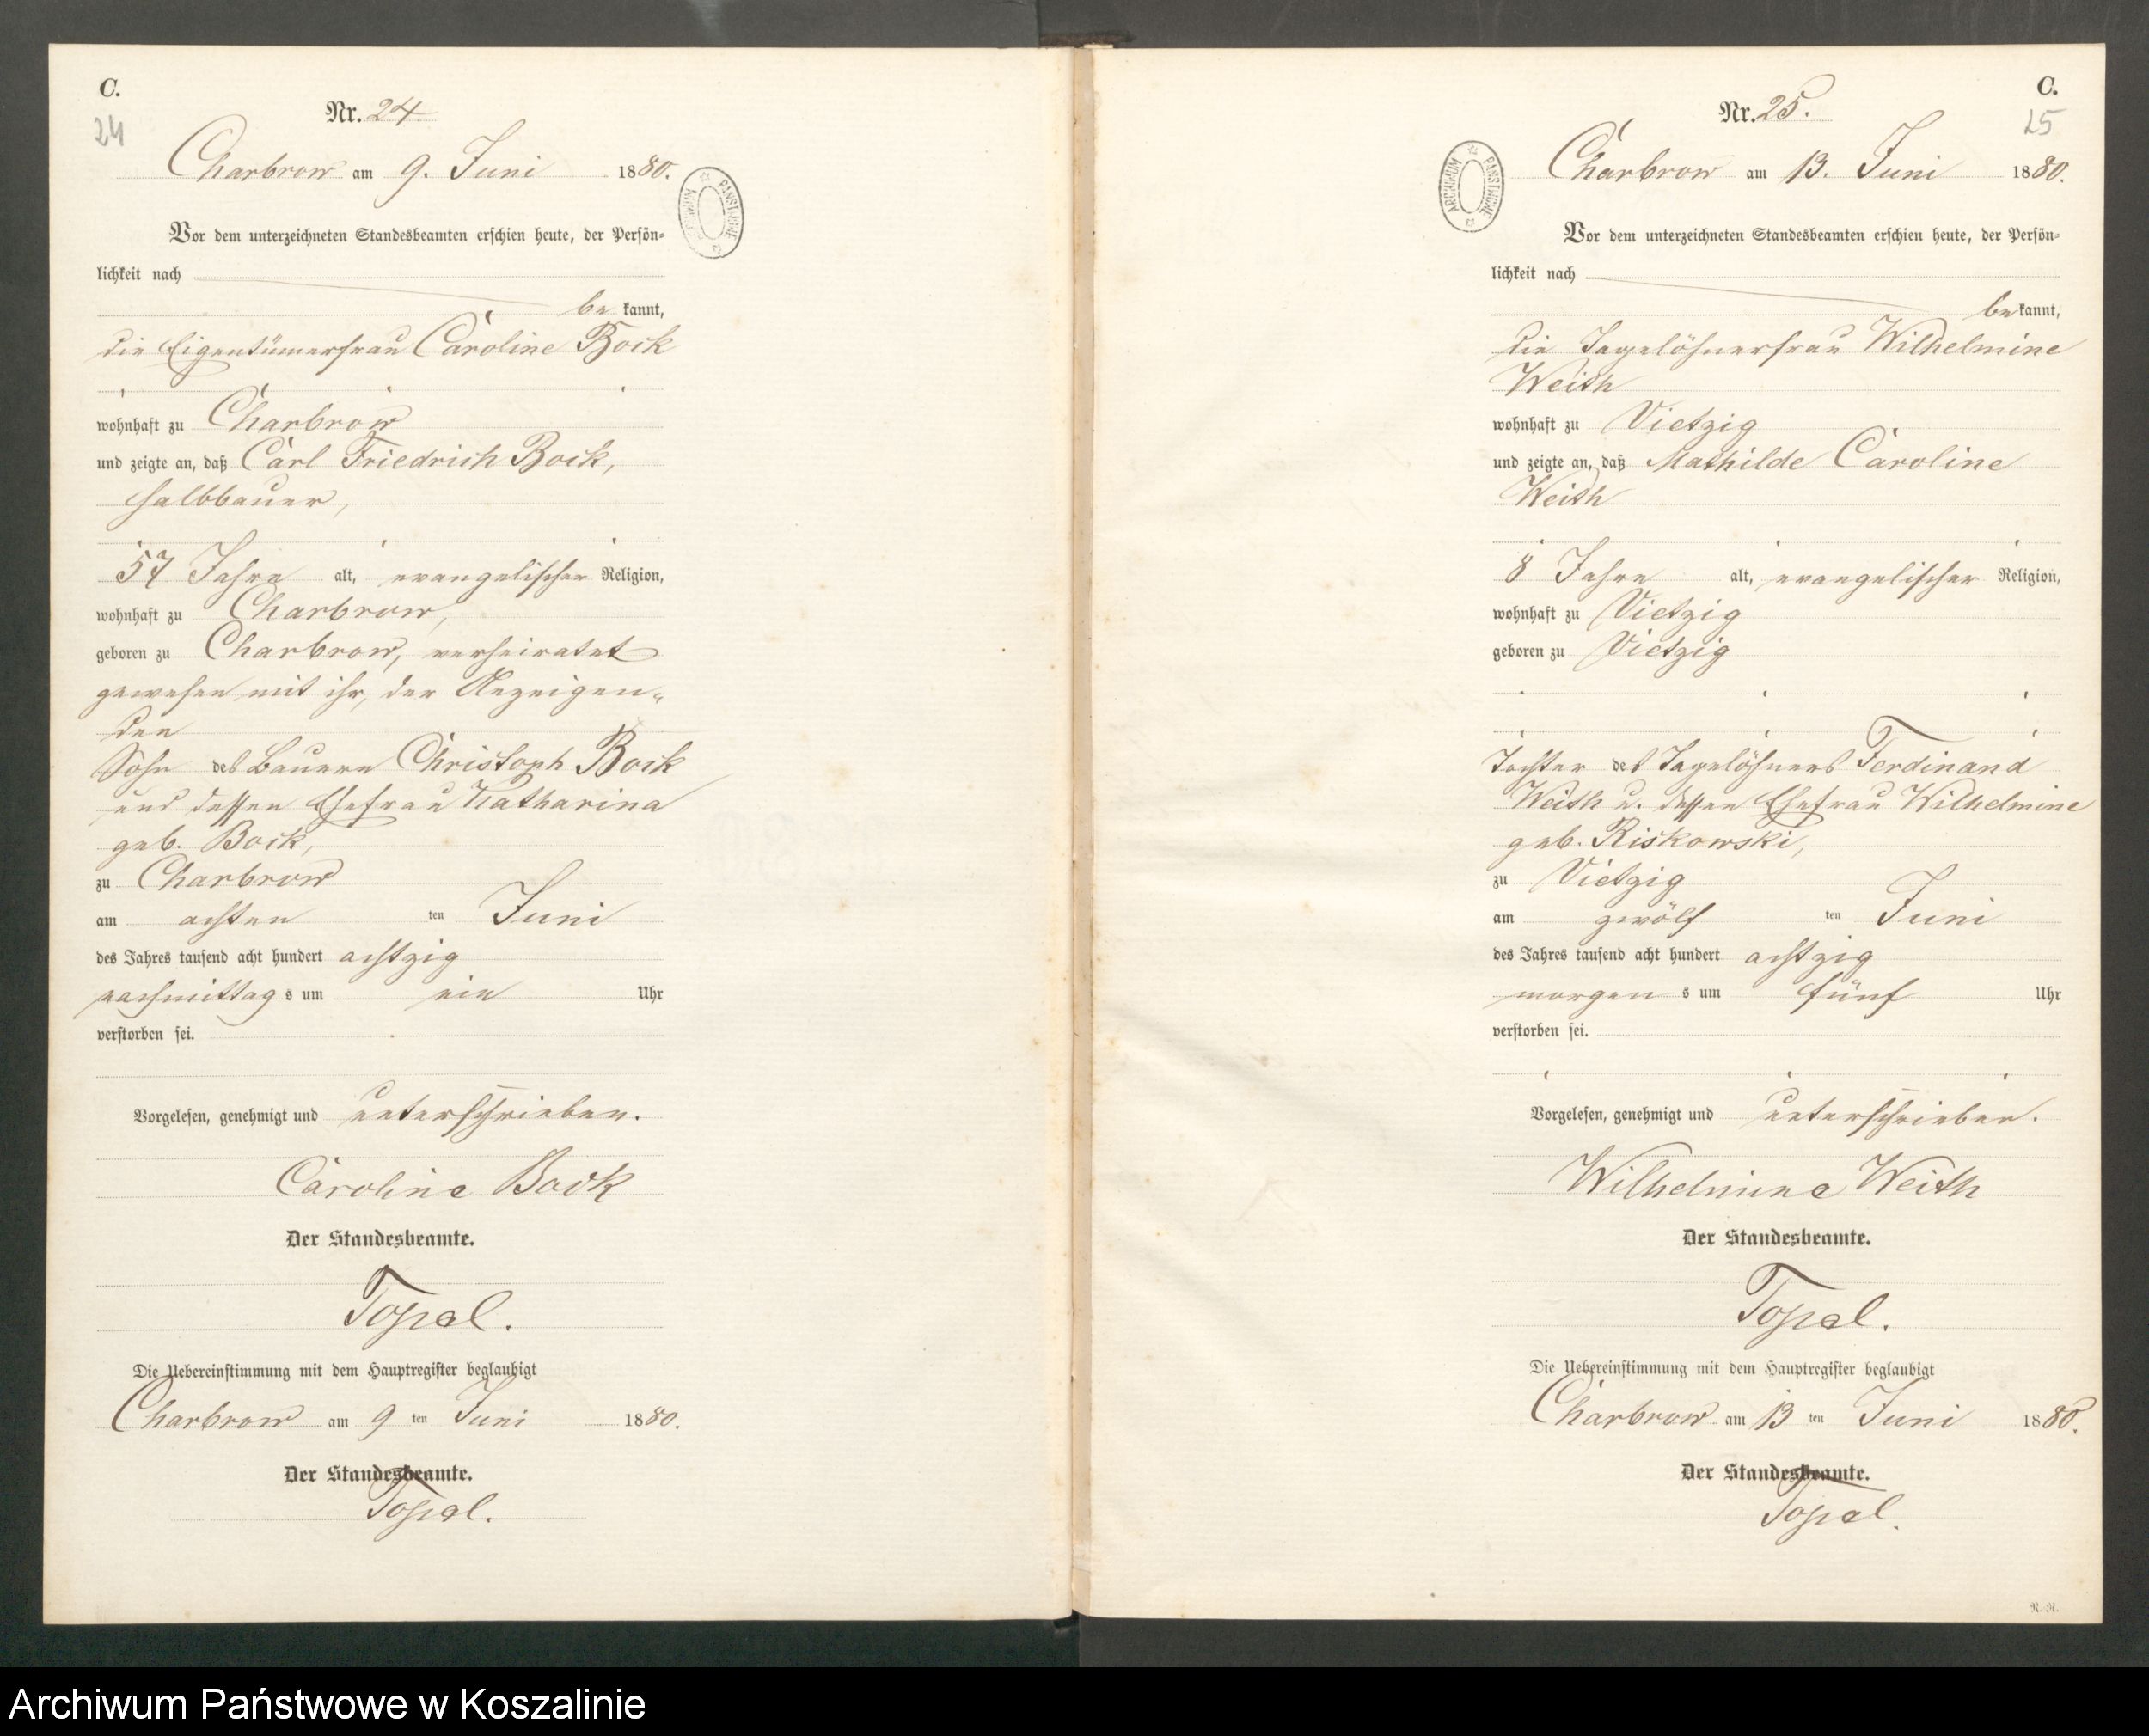 C.
24
Nr. 24
Charbrow am 9. Juni 1880.
ARCHIWUM PAŃSTWOWE
Vor dem unterzeichneten Standesbeamten erschien heute, der Persön-
lichkeit nach
be kannt,
die Eigentümerfrau Caroline Bock
wohnhaft zu Charbrow
und zeigte an, daß Carl Friedrich Bock,
Halbbauer,
57 Jahre alt, evangelischer Religion,
wohnhaft zu Charbrow,
geboren zu Charbrow, verheiratet
gewesen mit ihr, der Anzeigen-
den
Sohn des Bauern Christoph Bock
und dessen Ehefrau Katharina
geb. Bock,
zu Charbrow
am achten ten Juni
des Jahres tausend acht hundert achtzig
nachmittag s um ein Uhr
verstorben sei.
Vorgelesen, genehmigt und unterschrieben.
Caroline Bock
Der Standesbeamte.
Topel.
Die Uebereinstimmung mit dem Hauptregister beglaubigt
Charbrow am 9 ten Juni 1880.
Der Standesbeamte.
Topel.
C.
25
Nr. 25.
Charbrow am 13. Juni 1880.
ARCHIWUM PAŃSTWOWE
Vor dem unterzeichneten Standesbeamten erschien heute, der Persön-
lichkeit nach
be kannt,
die Tagelöhnerfrau Wilhelmine
Weith
wohnhaft zu Vietzig
und zeigte an, daß Mathilde Caroline
Weith
8 Jahre alt, evangelischer Religion,
wohnhaft zu Vietzig
geboren zu Vietzig
Tochter des Tagelöhners Ferdinand
Weith u. dessen Ehefrau Wilhelmine
geb. Riskowski,
zu Vietzig
am zwölf ten Juni
des Jahres tausend acht hundert achtzig
morgen s um fünf Uhr
verstorben sei.
Vorgelesen, genehmigt und unterschrieben.
Wilhelmine Weith
Der Standesbeamte.
Topel.
Die Uebereinstimmung mit dem Hauptregister beglaubigt
Charbrow am 13 ten Juni 1880.
Der Standesbeamte.
Topel.
Archiwum Państwowe w Koszalinie